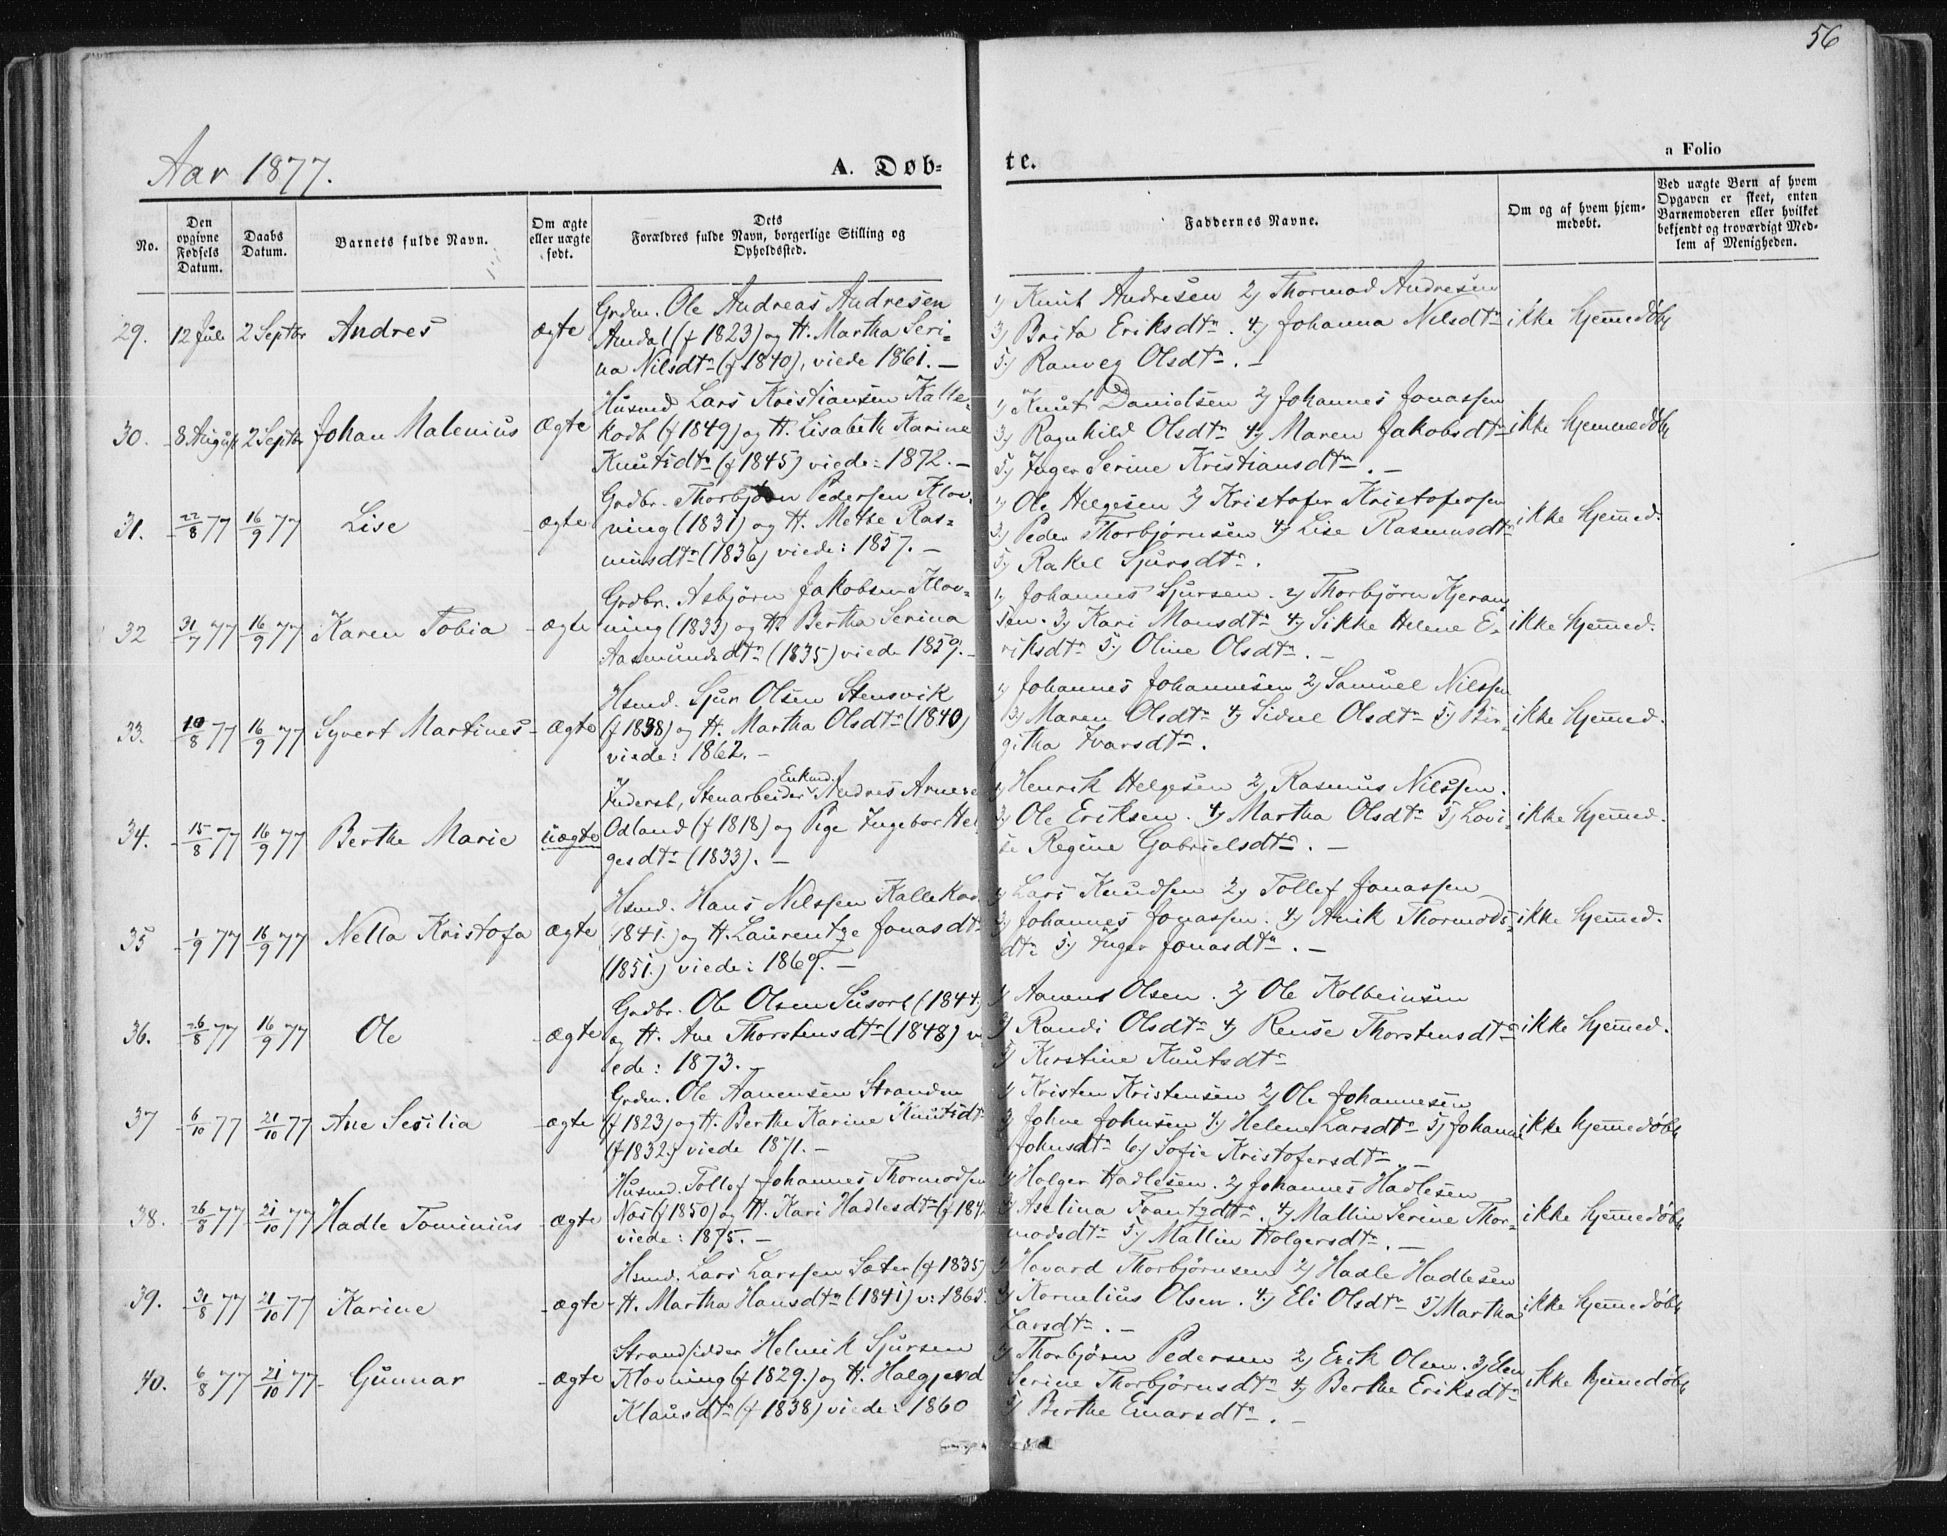 56
Aar 1877.
A. Døb-
te.
a Folio
No.
Den opgivne Fødsels Datum.
Daabs Datum.
Barnets fulde Navn.
Om ægte eller uægte født.
Dets Forældres fulde Navn, borgerlige Stilling og Opholdssted.
Faddernes Navne.
Om og af hvem hjem-medøbt.
Ved uægte Børn af hvem Opgaven er skeet, enten Barnemoderen eller hvilket bekjendt og troværdigt Med-lem af Menigheden.
29. 12 Juli 2 Septbr Andres ægte
Grdm. Ole Andreas Andresen
Amdal (f 1823) og H. Martha Seri-
na Nilsdtr (f 1840), viede 1861. -
1) Knut Andresen 2) Thormod Andresen
3) Brita Eriksdtr. 4) Johanna Nilsdtr
5) Ranveg Olsdtr. -
ikke hjemmedøbt
30. 8 August 2 Septbr Johan Malenius ægte
Husmd. Lars Kristiansen Kalle-
kodt (f 1849) og H. Lisabeth Karine
Knutsdtr (f 1845) viede: 1872. -
1) Knut Danielsen 2) Johannes Jonassen
3) Ragnhild Olsdtr 4) Maren Jakobsdtr
5) Inger Serine Kristiansdtr. -
ikke hjemmedøbt
31. 22/8 77 16/9 77 Lise ægte
Grdbr. Thorbjørn Pedersen Klov-
ning (1831) og H. Mette Ras-
musdtr (1836) viede: 1857. -
1) Ole Helgesen 2) Kristofer Kristofersen
3) Peder Thorbjørnsen 4) Lise Rasmusdtr
5) Rakel Sjursdtr.
ikke hjemmed.
32 31/7 77 16/9 77 Karen Tobia ægte
Grdbr. Asbjørn Jakobsen Klov-
ning (1833) og H. Bertha Serina
Aasmundsdtr (1835) viede 1859. -
1) Johannes Sjursen. 2) Thorbjørn Kjeran
sen. 3) Kari Monsdtr 4) Sikke Helene E-
riksdtr 5) Oline Olsdtr. -
ikke hjemmed.
33. 10/8 77 16/9 77 Syvert Martines ægte
Hsmd. Sjur Olsen Stensvik
(f 1838) og H. Martha Olsdtr (1840)
viede: 1862. -
1) Johannes Johannesen 2) Samuel Nilssen
3) Maren Olsdtr 4) Sidsel Olsdtr 5) Bir-
githa Ivarsdtr.
ikke hjemmed.
34. 15/8 77 16/9 77 Berthe Marie uægte
Inderst, Stenarbeider Enkmd. Andres Arnese
Odland (f 1818) og Pige Ingebor Hel
gesdtr (1833). -
1) Henrik Helgesen 2) Rasmus Nilssen.
3) Ole Eriksen. 4) Martha Olsdtr 5) Lovi-
se Regine Gabrielsdtr. -
ikke hjemmed.
35 1/9 77 16/9 77 Nella Kristofa ægte
Hsmd. Hans Nilssen Kallekod
1841.) og H. Laurentze Jonasdtr
(1851.) viede: 1869. -
1) Lars Knudsen 2) Tollef Jonassen
3) Johannes Jonassen. 4) Anik Thormods-
dtr 5) Inger Jonasdtr. -
ikke hjemmed.
36. 26/8 77 16/9 77 Ole ægte
Grdbr. Ole Olsen Susort (1844)
og H. Ane Thorstensdtr (1848) vi
ede: 1873. -
1) Aanens Olsen. 2) Ole Kolbeinsen
3) Randi Olsdtr 4) Rense Thorstensdtr
5) Kirstine Knutsdtr
ikke hjemmed.
37 6/10 77 21/10 77 Ane Sesilia ægte
Grdm. Ole Aanensen Stranden
(f 1823) og H. Berthe Karine Knutsdtr
(f 1832.) viede 1871. -
1) Kristen Kristensen 2) Ole Johannesen
3) Johne Johnsen 4) Helene Larsdtr 5) Johanne
Johnsdtr 6) Sofie Kristofersdtr. -
ikke hjemmedøbt
38. 26/8 77 21/10 77 Hadle Tominius ægte
Husmd. Tollef Johannes Thormodsen
Næs (f 1850) og H. Kari Hadlesdtr (f 184
viede: 1875. -
1) Holger Hadlesen. 2) Johannes Hadlesen
3) Aselina Frantzdtr. 4) Mallin Serine Thor-
modsdtr 5) Mallin Holgersdtr. -
ikke hjemmedøbt
39. 31/8 77 21/10 77 Karine ægte
Hsmd. Lars Larssen Sæter (f 1835)
H. Martha Hansdtr (1841) v: 1865.
1) Havard Thorbjørnsen 2) Hadle Hadlesen
3) Kornelius Olsen. 4) Eli Olsdtr 5) Martha
Larsdtr. -
ikke hjemmedøbt
40. 6/8 77 21/10 77 Gunnar ægte
Strandsidder Helmik Sjursen
Klovning (f 1829.) og H. Halgjerd
Klausdtr (f 1838) viede: 1860
1) Thorbjørn Pedersen 2) Erik Olsen. 3) Elen
Serine Thorbjørnsdtr 4) Berthe Eriksdtr
5) Berthe Einarsdtr. -
ikke hjemmedøbt